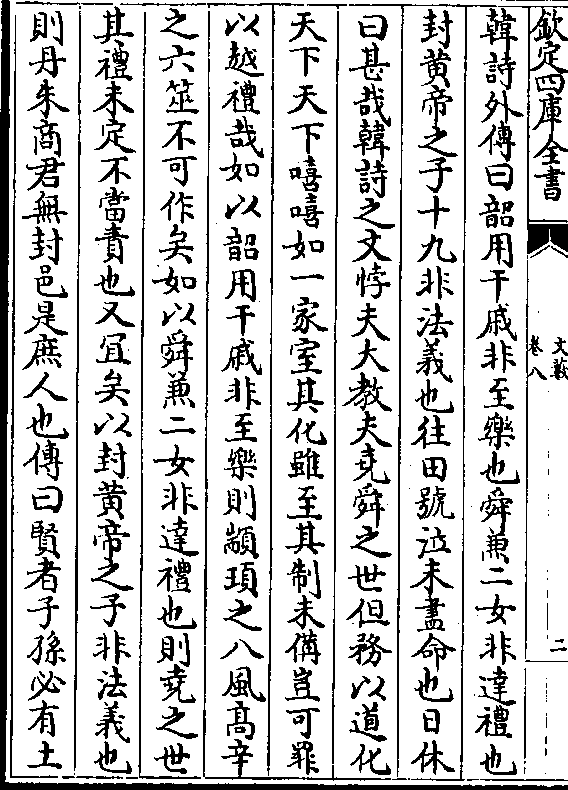 欽定四庫全書
文藪
卷八
二
韓詩外傳曰韶用干戚非至樂也舜兼二女非達禮也
封黃帝之子十九非法義也往田號泣未盡命也日休
曰甚哉韓詩之文悖夫大教夫堯舜之世但務以道化
天下天下嘻嘻如一家室其化雖至其制未備豈可罪
以越禮哉如以韶用干戚非至樂則顓頊之八風高辛
之六莖不可作矣如以舜兼二女非達禮也則堯之世
其禮未定不當責也又宜矣以封黃帝之子非法義也
則丹朱商君無封邑是庶人也傳曰賢者子孫必有土